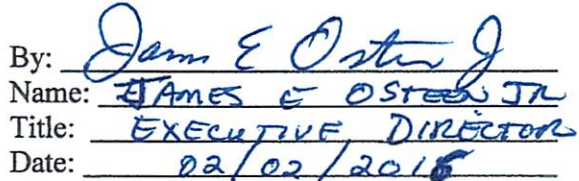 By: James E Osteen Jr
Name: JAMES E OSTEEN JR
Title: EXECUTIVE DIRECTOR
Date: 02/02/2016